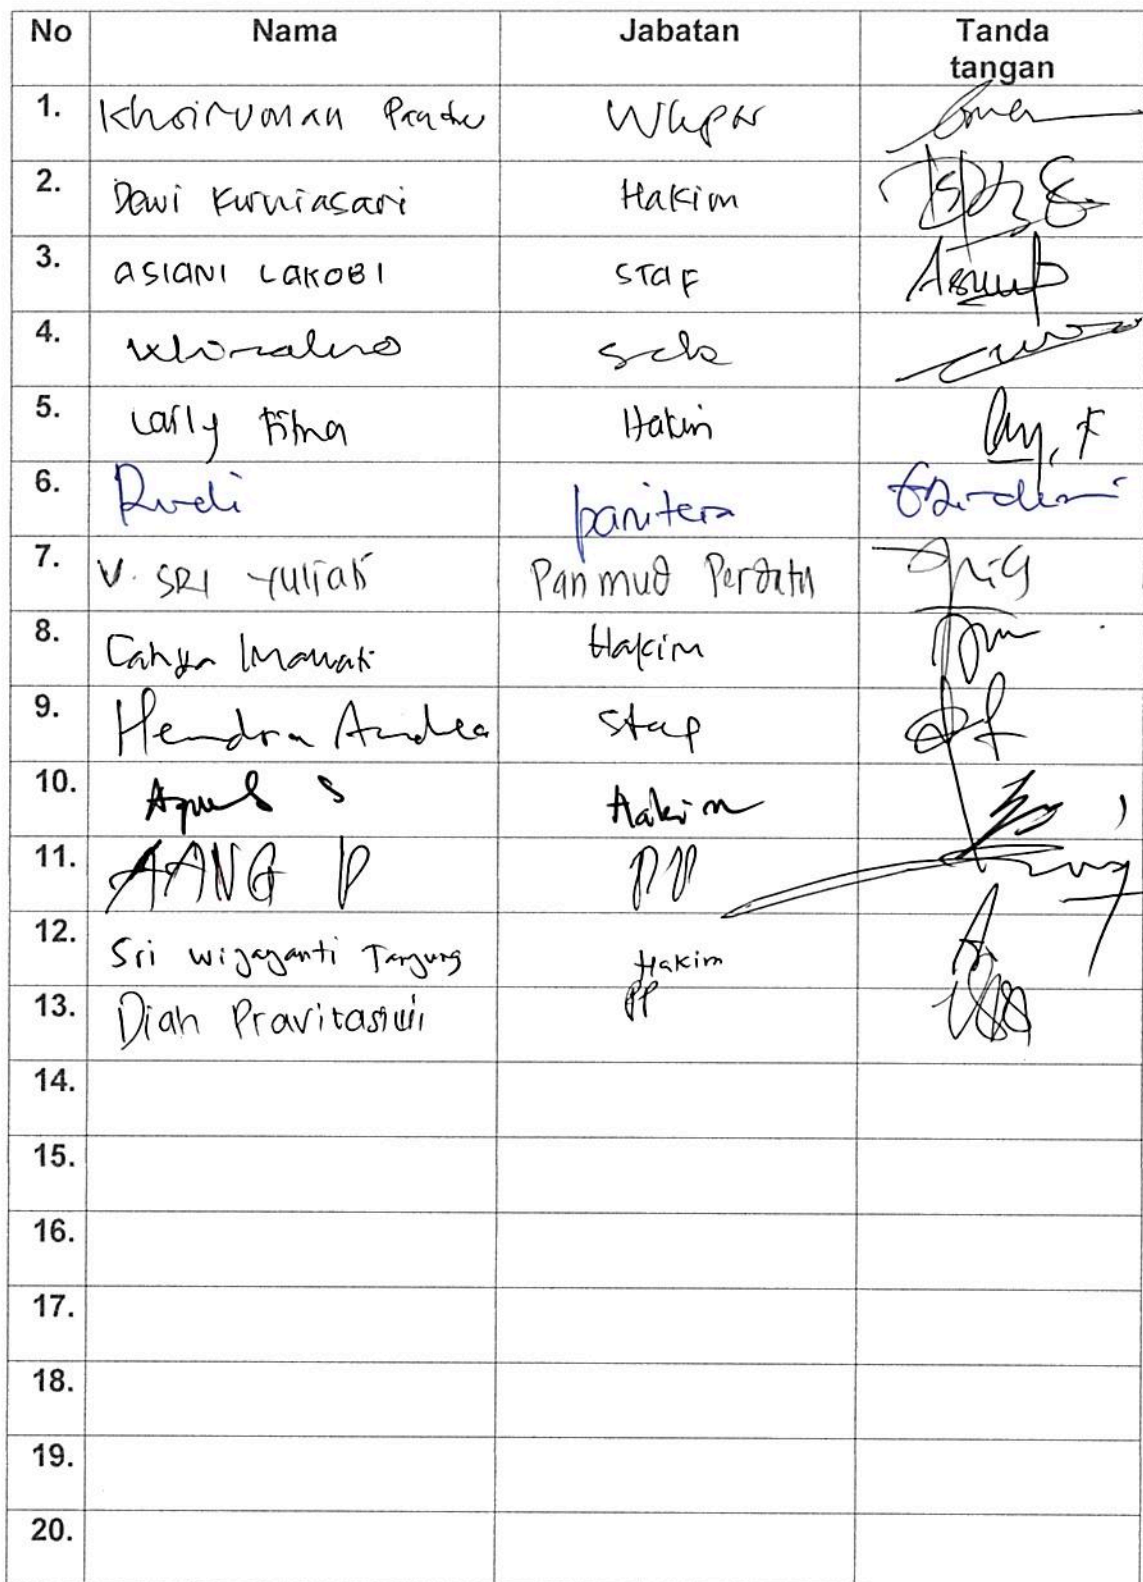 No Nama Jabatan Tanda tangan
1. Khoiruman
2. Dewi Kurniasari Hakim
3. ASIANI LAKOBI STAF
4.
5. Laily Fitna Hakim
6. Rudi panitera
7. V. SRI Yuliati Panmud Perdata
8. Cahya Imawati Hakim
9. Hendra Andrea Stap
10. Agus S Hakim
11. AANG P PP
12. Sri Wijayanti Tanjung Hakim
13. Diah Pravitasari PP
14.
15.
16.
17.
18.
19.
20.